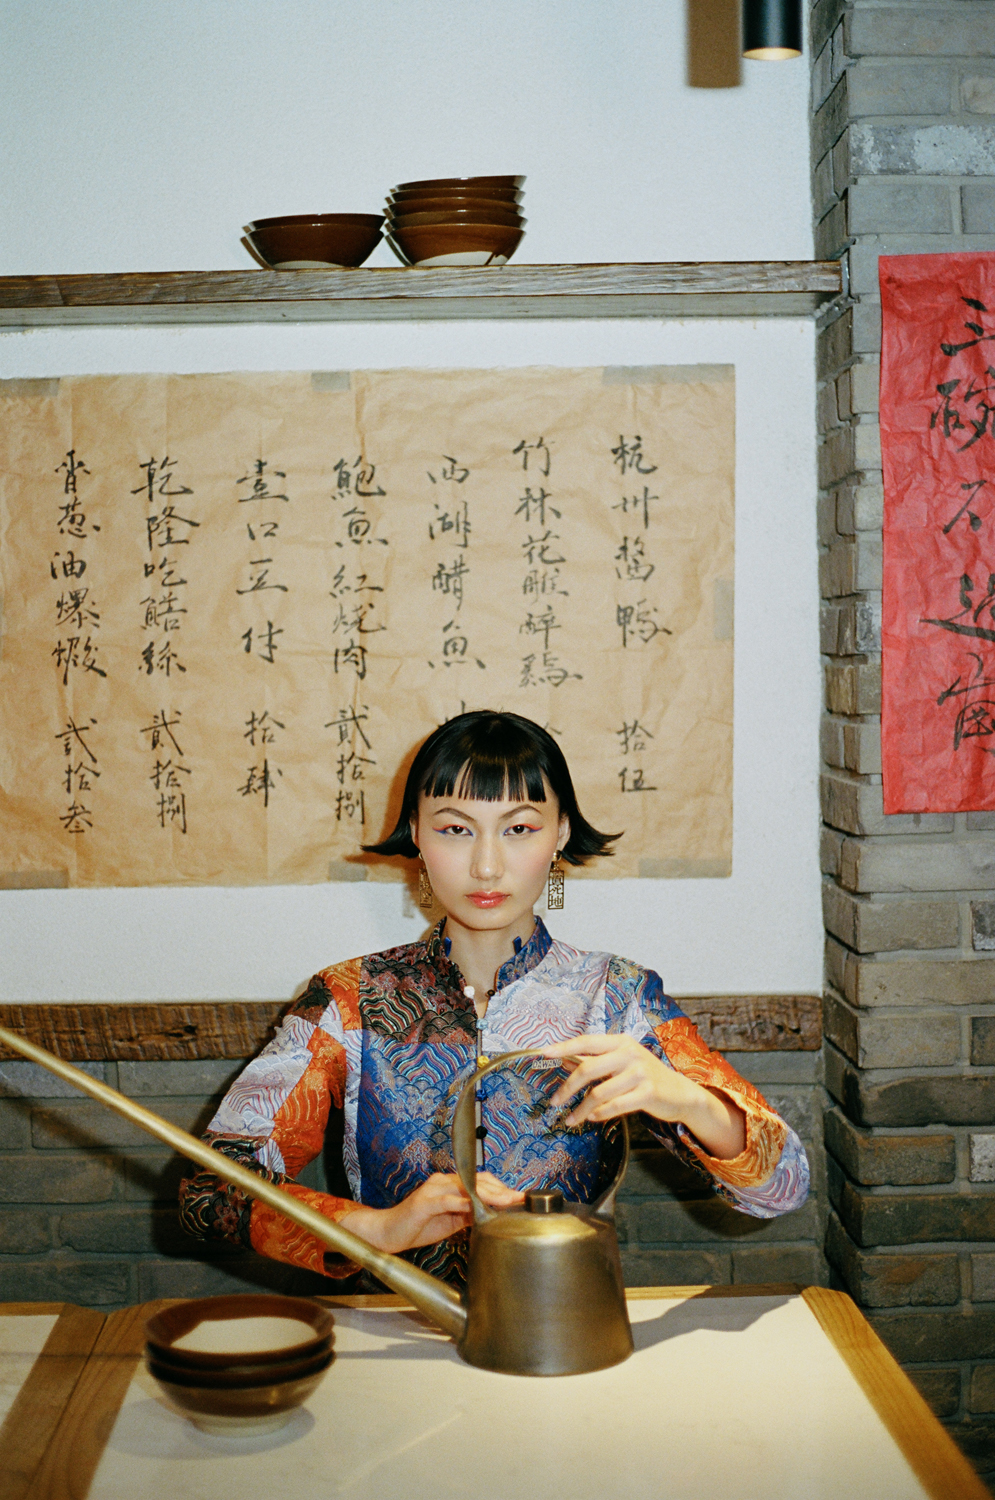 三碗不過崗
杭州醬鴨 拾伍
竹林花雕醉鷄
西湖醋魚
鮑魚紅燒肉 貳拾捌
壹口豆付 拾肆
乾隆吃鱔絲 貳拾捌
香葱油爆蝦 貳拾叁